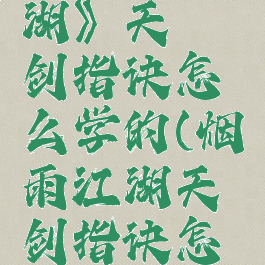 湖》天
剑指诀怎
么学的(烟
雨江湖天
剑指诀怎